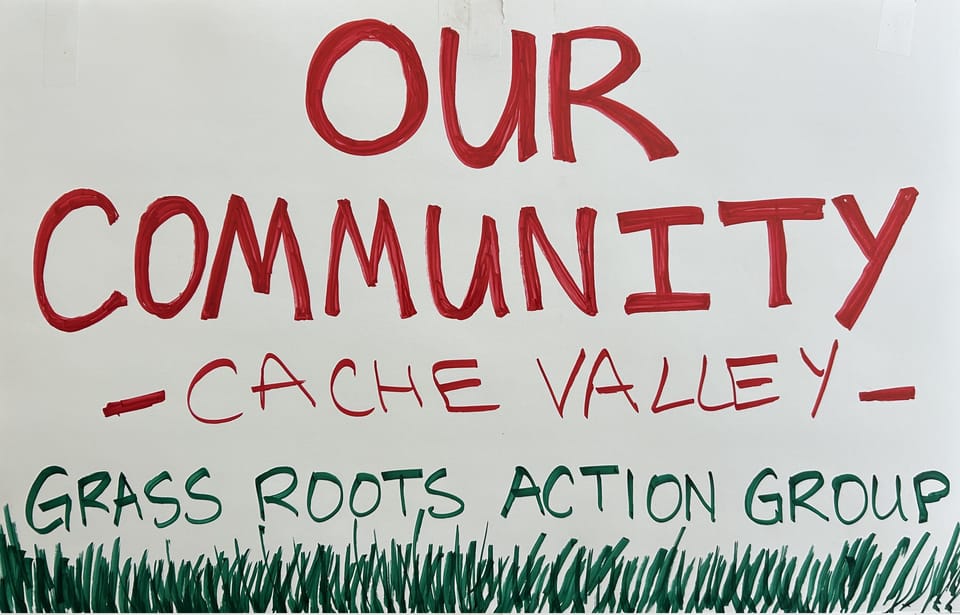 OUR
COMMUNITY
- CACHE VALLEY -
GRASS ROOTS ACTION GROUP